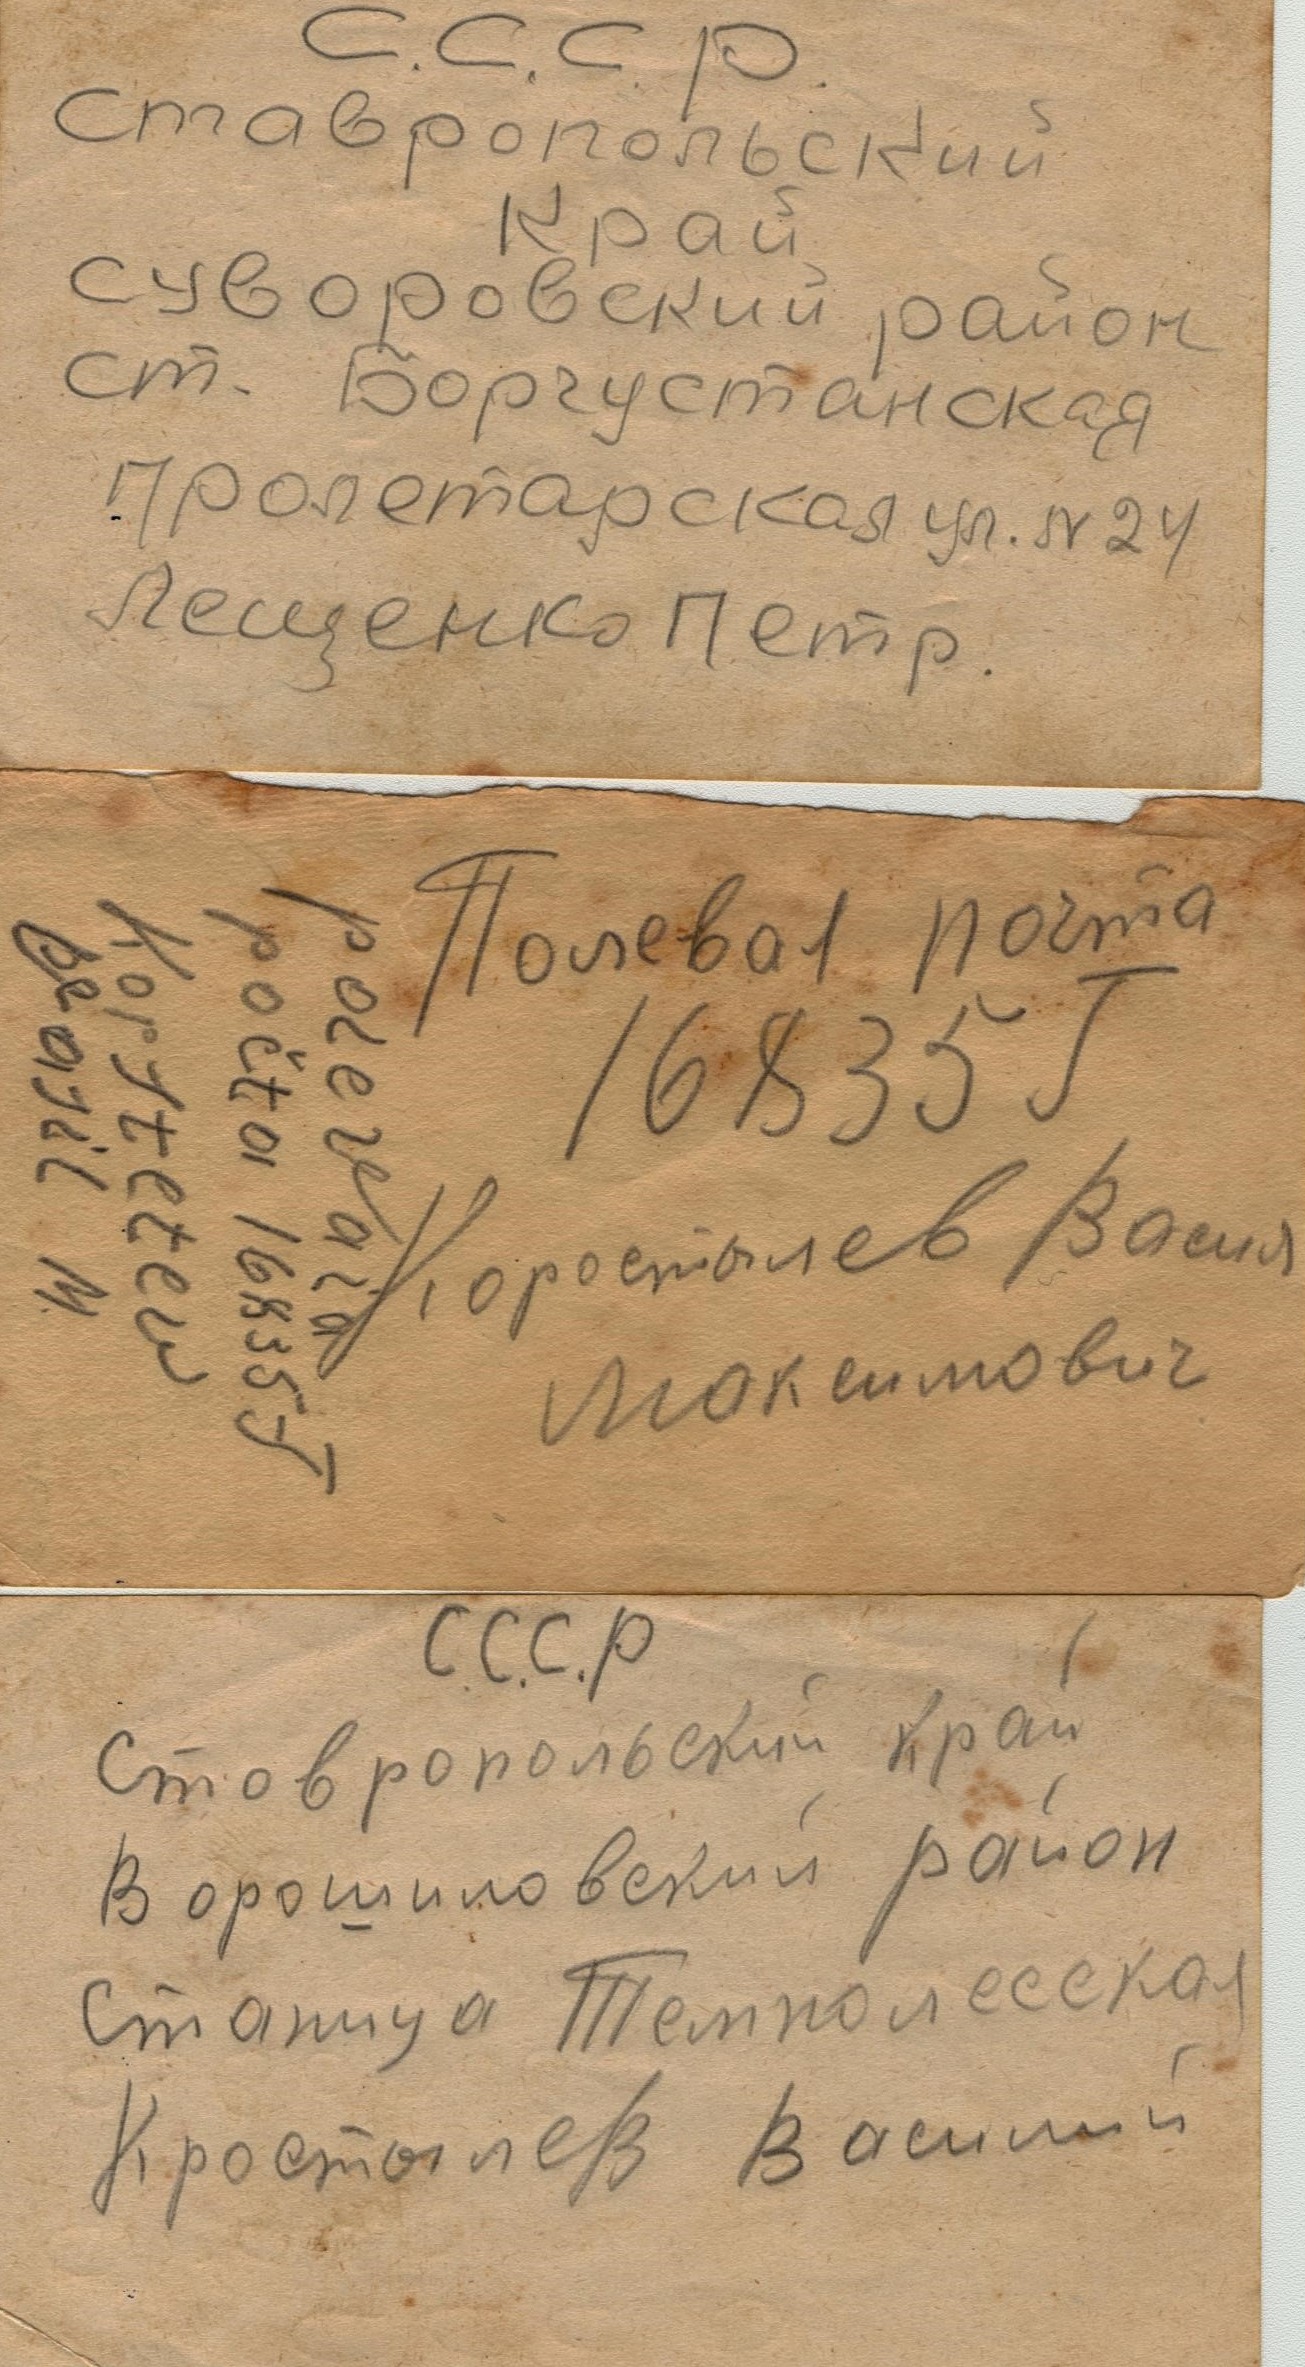 С.С.С.Р.
Ставропольский
Край
Суворовский район
ст. Боргустанская
Пролетарская ул. № 24
Лещенко Петр.
Полевая почта
16835 J
Коростылев Васил
Максимович
polevaia
počta 16835J
M.
С.С.С.Р
Ставропольский край
Ворошиловский район
Станица Темнолесская
Кростылев Василий